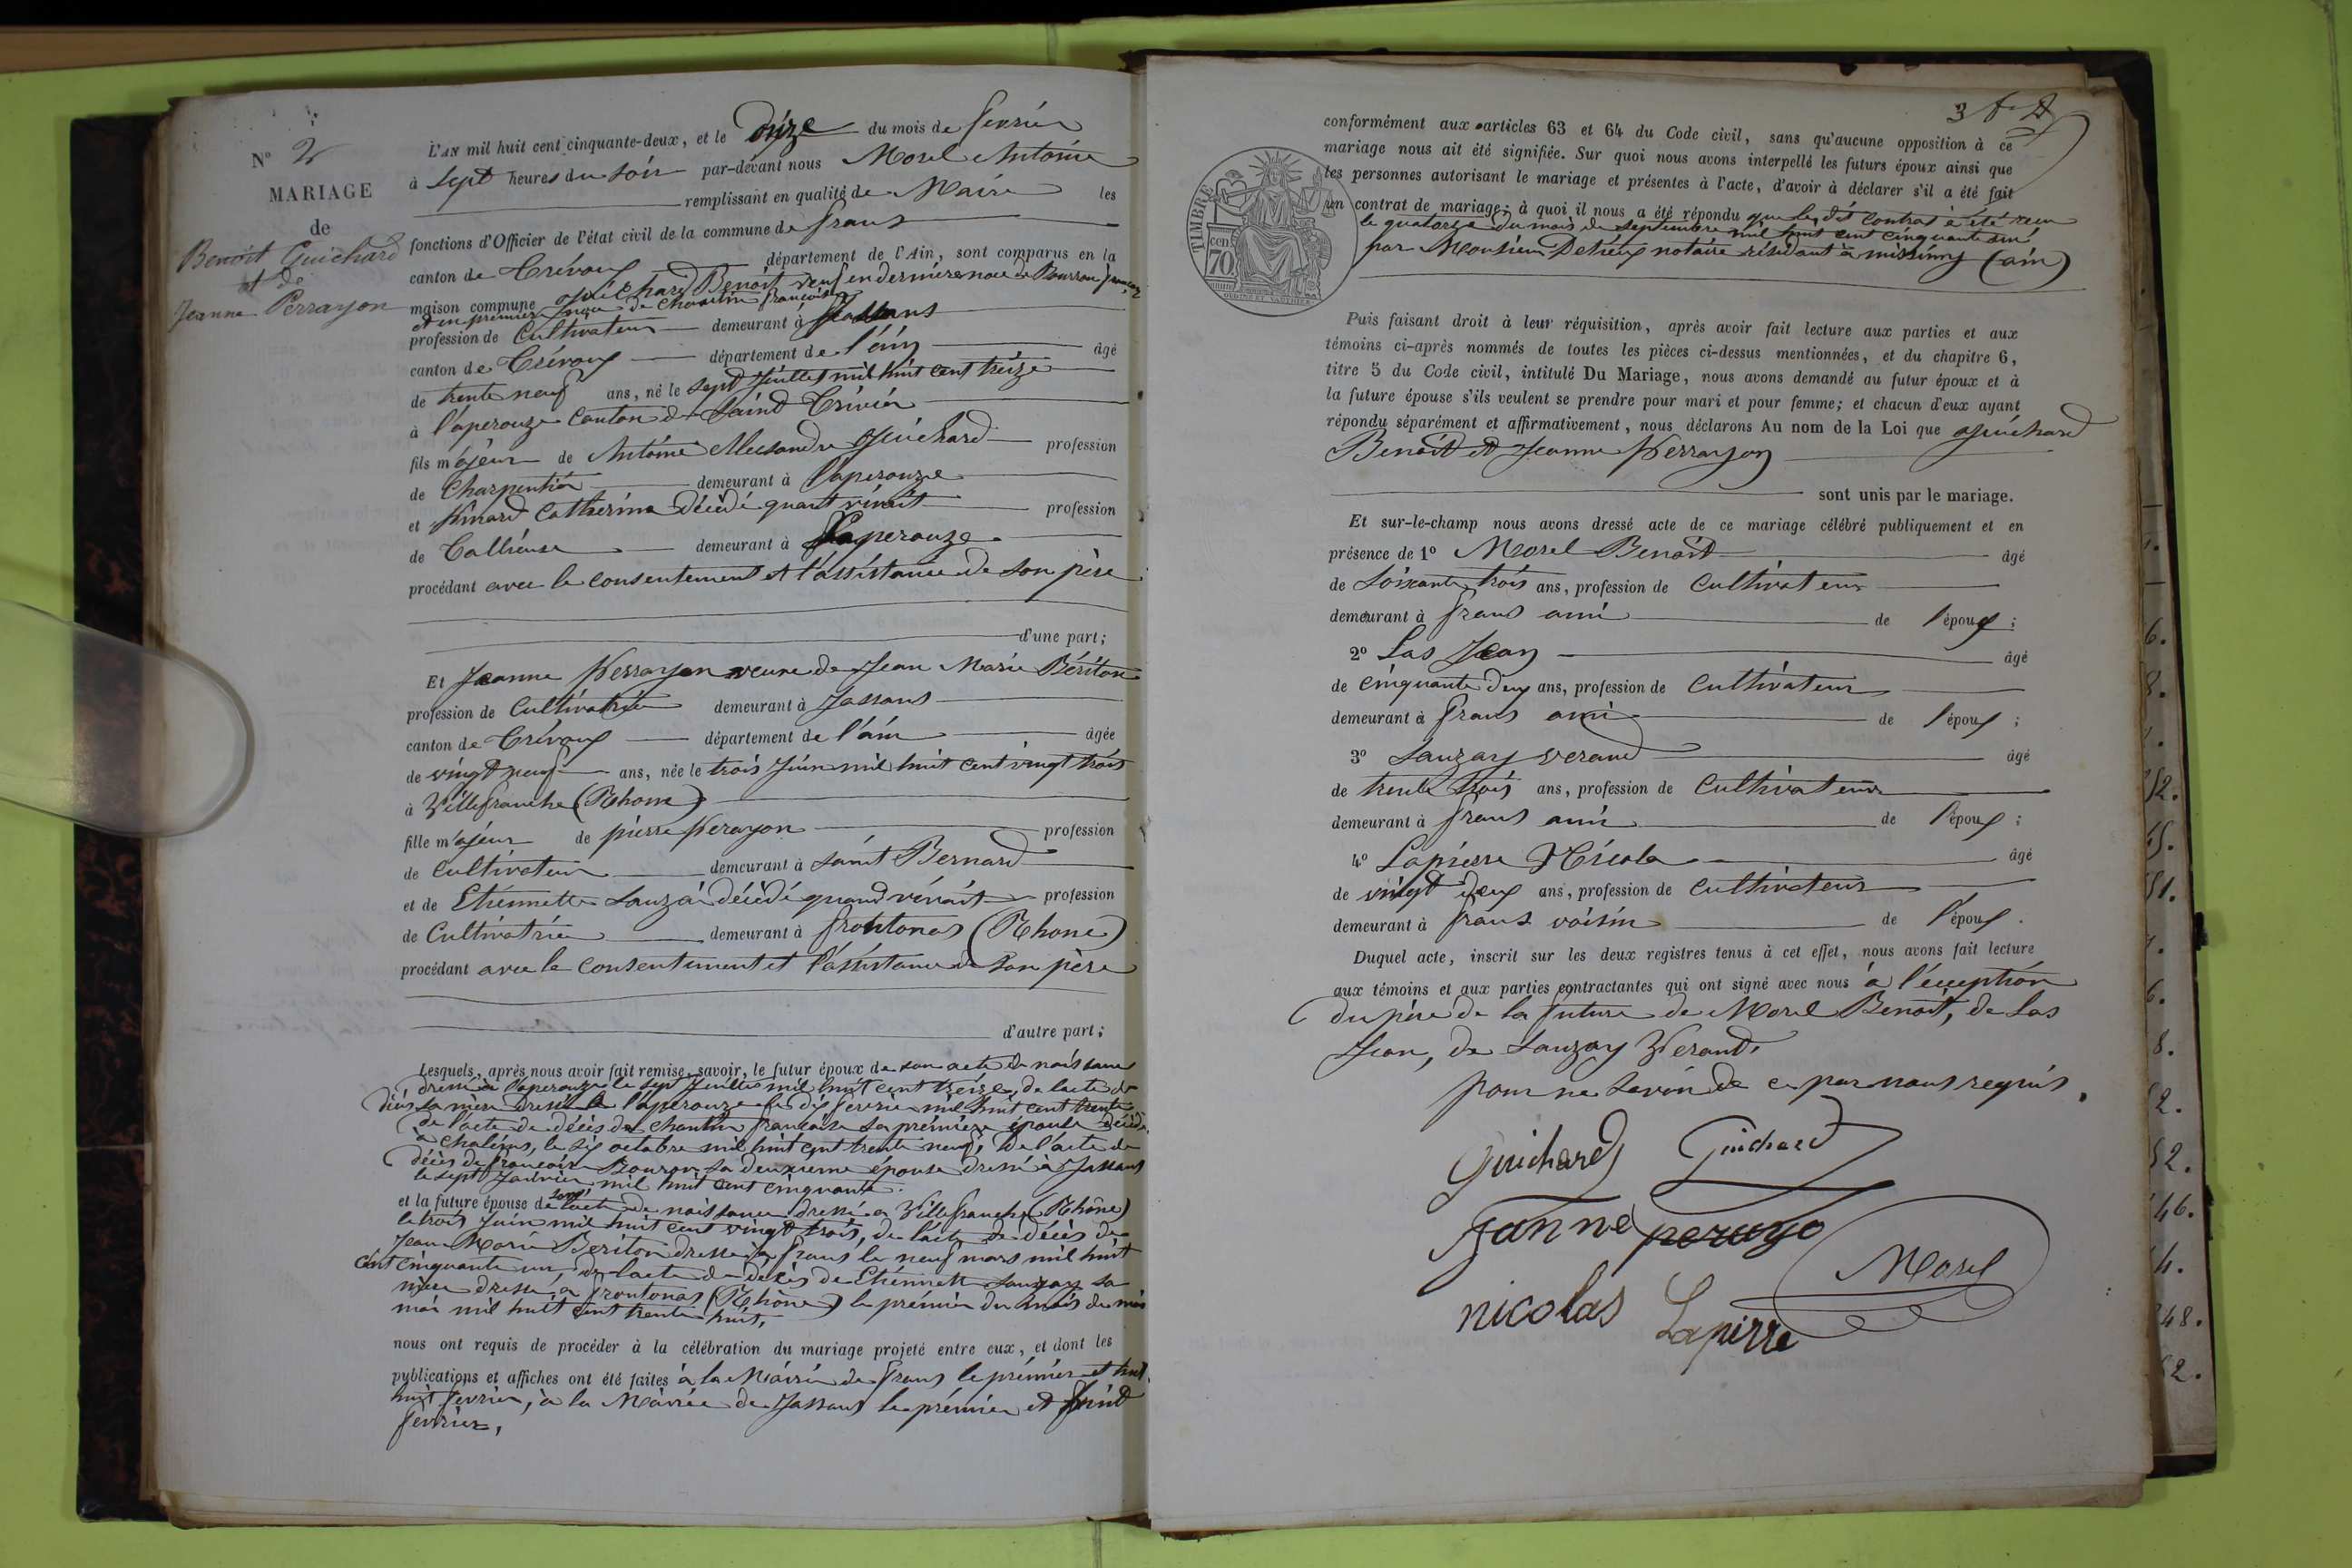 N° 2
MARIAGE
de
Benoit Guichard
et de
Jeanne Perrayon
L'AN mil huit cent cinquante-deux, et le onze du mois de fevrier
à Sept heures du Soir par-devant nous Morel Antoine
remplissant en qualité de Maire les
fonctions d'Officier de l'état civil de la commune de frans
canton de Trévoux département de l'Ain, sont comparus en la
maison commune Guichard Benoit veuf en dernière noce de Bourron françoise
et en première noce de Chanrtin françoise
profession de Cultivateur demeurant à Jassans
canton de Trévoux département de l'ain âgé
de trente neuf ans, né le sept Juillet mil huit cent treize
à l'aperouze canton de Saint Trivier
fils m'ajeur de Antoine Alexsandre Guichard profession
de Charpentier demeurant à l'aperouze
et Pinard Catherine décédé quant vivait profession
de Tallieuse demeurant à Laperouze
procédant avec le consentement et l'assistance de son père
d'une part;
Et Jeanne Perrayon veuve de Jean Marie Bériton
profession de Cultivatrice demeurant à Jassans
canton de Trévoux département de l'ain âgée
de vingt neuf ans, née le trois Juin mil huit cent vingt trois
à Villefranche (Rhone)
fille m'ajeur de pierre Perayon profession
de Cultivateur demeurant à saint Bernard
et de Etiennette Sauzai décédé quand vivait profession
de Cultivatrice demeurant à frontonas (Rhone)
procédant avec le consentement et l'assistance de son père
d'autre part;
Lesquels, après nous avoir fait remise, savoir, le futur époux de son acte de naissance
dressé à l'aperouze le sept Juillet mil huit cent treize, de l'acte de
décès sa mère dressé à l'aperouze le dix fevrier mil huit cent trente
de l'acte de décès de chantin françoise sa première épouse décédé
à Chaleins, le six octobre mil huit cent trente neuf, De l'acte de
décès de françoise Bouron sa deuxieme épouse dressé à Jassans
le sept Janvier mil huit cent cinquante.
et la future épouse de l'acte de naissance dressé à Villefranche (Rhône)
le trois Juin mil huit cent vingt trois, de l'acte de décès de
Jean Marie Beriton dressé à frans le neuf mars mil huit
cent cinquante un, de l'acte de décès de Etiennette Sauzay sa
mère dressé à frontonas (Rhône) le prémier du mois de mai
mil huit cent trente huit,
nous ont requis de procéder à la célébration du mariage projeté entre eux, et dont les
publications et affiches ont été faites à la Mairie de frans le prémier et huit
huit fevrier, à la Mairie de Jassans le prémier et huit
fevrier,
conformément aux articles 63 et 64 du Code civil, sans qu'aucune opposition à ce
mariage nous ait été signifiée. Sur quoi nous avons interpellé les futurs époux ainsi que
les personnes autorisant le mariage et présentes à l'acte, d'avoir à déclarer s'il a été fait
un contrat de mariage; à quoi il nous a été répondu que le dit contrat à été recu
le quatorze du mois de septembre mil huit cent cinquante un
par Monsieur Detieux notaire résidant à missimy (ain)
TIMBRE
70 cen
Puis faisant droit à leur réquisition, après avoir fait lecture aux parties et aux
témoins ci-après nommés de toutes les pièces ci-dessus mentionnées, et du chapitre 6,
titre 5 du Code civil, intitulé Du Mariage, nous avons demandé au futur époux et à
la future épouse s'ils veulent se prendre pour mari et pour femme; et chacun d'eux ayant
répondu séparément et affirmativement, nous déclarons Au nom de la Loi que Guichard
Benoit et Jeanne Perrayon
sont unis par le mariage.
Et sur-le-champ nous avons dressé acte de ce mariage célébré publiquement et en
présence de 1° Morel Benoit âgé
de Soixante trois ans, profession de cultivateur
demeurant à frans ami de l'époux;
2° Las Jean âgé
de cinquante deux ans, profession de Cultivateur
demeurant à frans ami de l'époux;
3° Sauzay verand âgé
de trente trois ans, profession de Cultivateur
demeurant à frans ami de l'époux;
4° Lapierre Nicola âgé
de vingt deux ans, profession de cultivateur
demeurant à frans voisin de l'époux.
Duquel acte, inscrit sur les deux registres tenus à cet effet, nous avons fait lecture
aux témoins et aux parties contractantes qui ont signé avec nous à l'éception
du père de la future de Morel Benoit, de Las
Jean, de Sauzay Verand,
pour ne savoir de ce par nous requis.
Guichard Guichard
Janne perayo
Morel
nicolas Lapirre